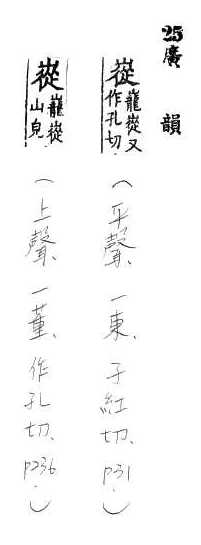 25廣韻
嵸巃嵸又作孔切（平聲、一東、子紅切、p31.）
嵸巃嵸山皃（上聲、一董、作孔切、p236.）